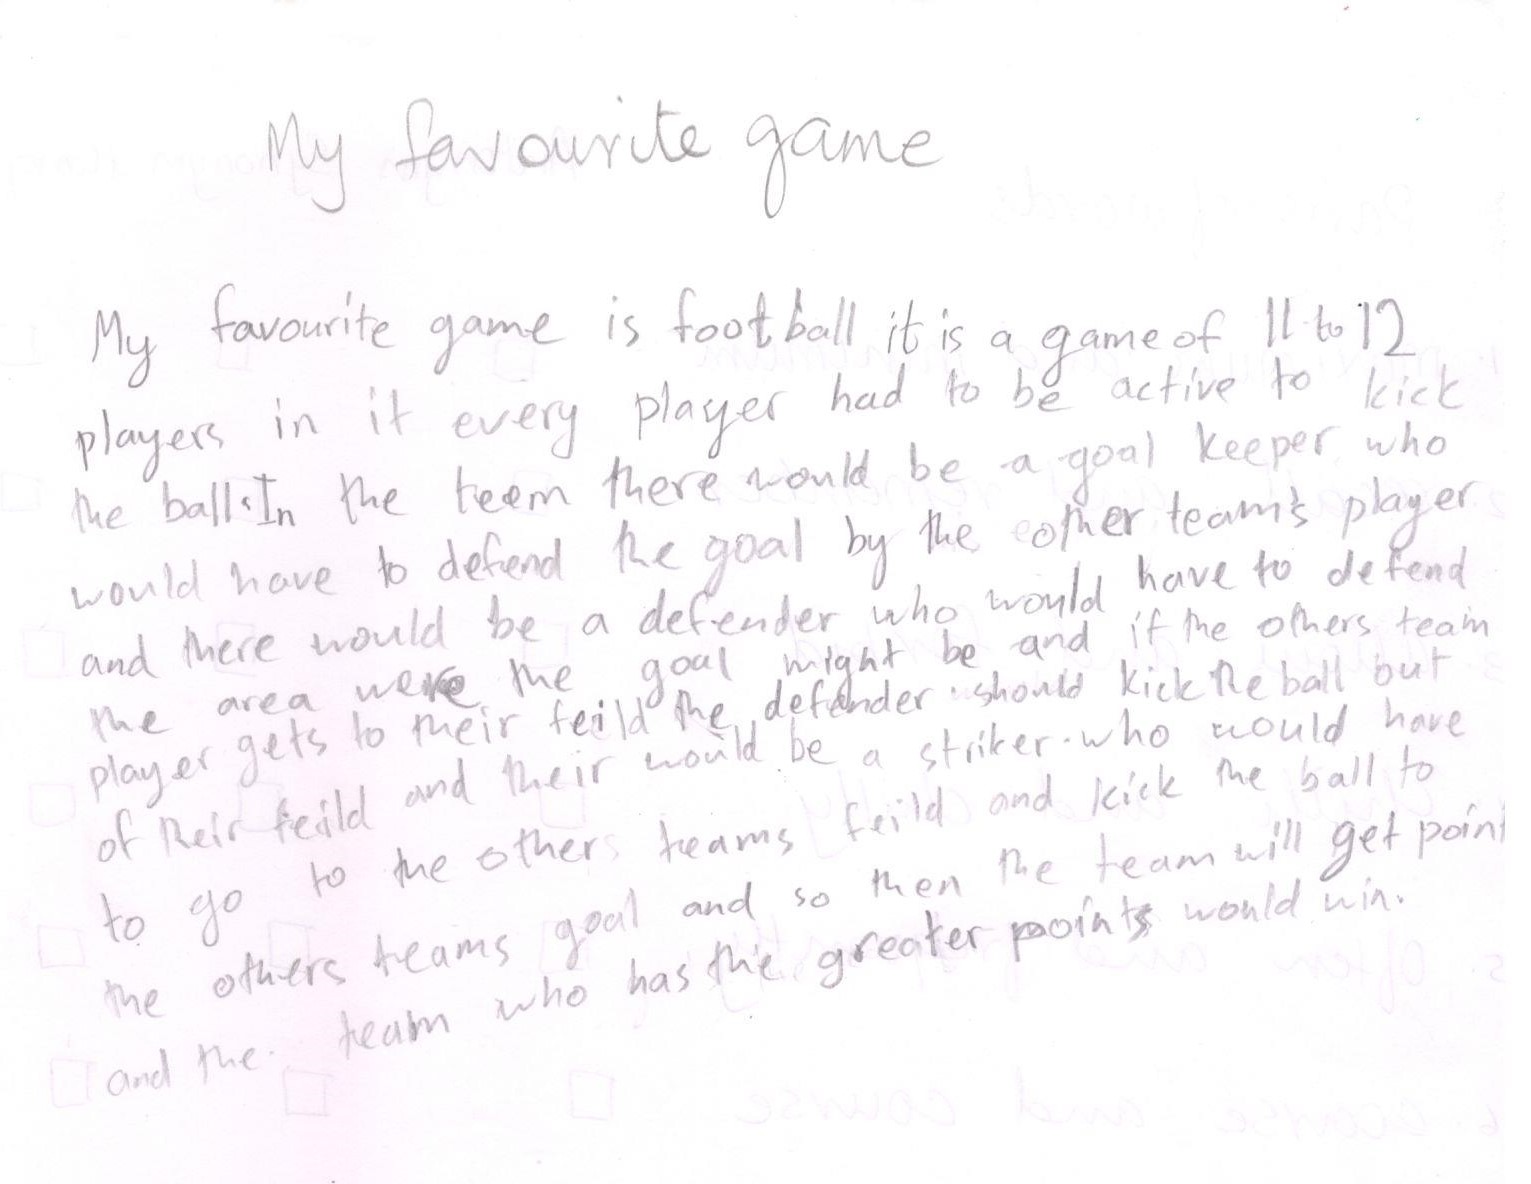 My favourite game
My favourite game is football it is a game of 11 to 12
players in it every player had to be active to kick
the ball. In the teem there would be a goal keeper who
would have to defend the goal by the other team's player
and there would be a defender who would have to defend
the area were the goal might be and if the others team
player gets to their feild the defender should kick the ball out
of their feild and their would be a striker who would have
to go to the others teams feild and kick the ball to
the others teams goal and so then the team will get point
and the team who has the greater points would win.